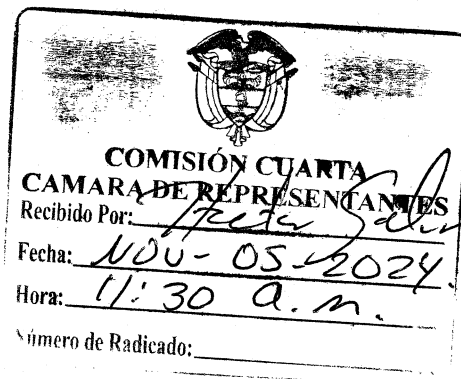 COMISIÓN CUARTA
CAMARA DE REPRESENTANTES
Recibido Por:
Fecha: NOV - 05 - 2024.
Hora: 11:30 a.m.
Número de Radicado: